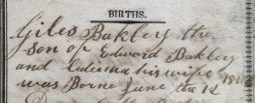 BIRTHS.
Giles Bakley the
Son of Edward Bakley
and his wife
was Borne June the 12